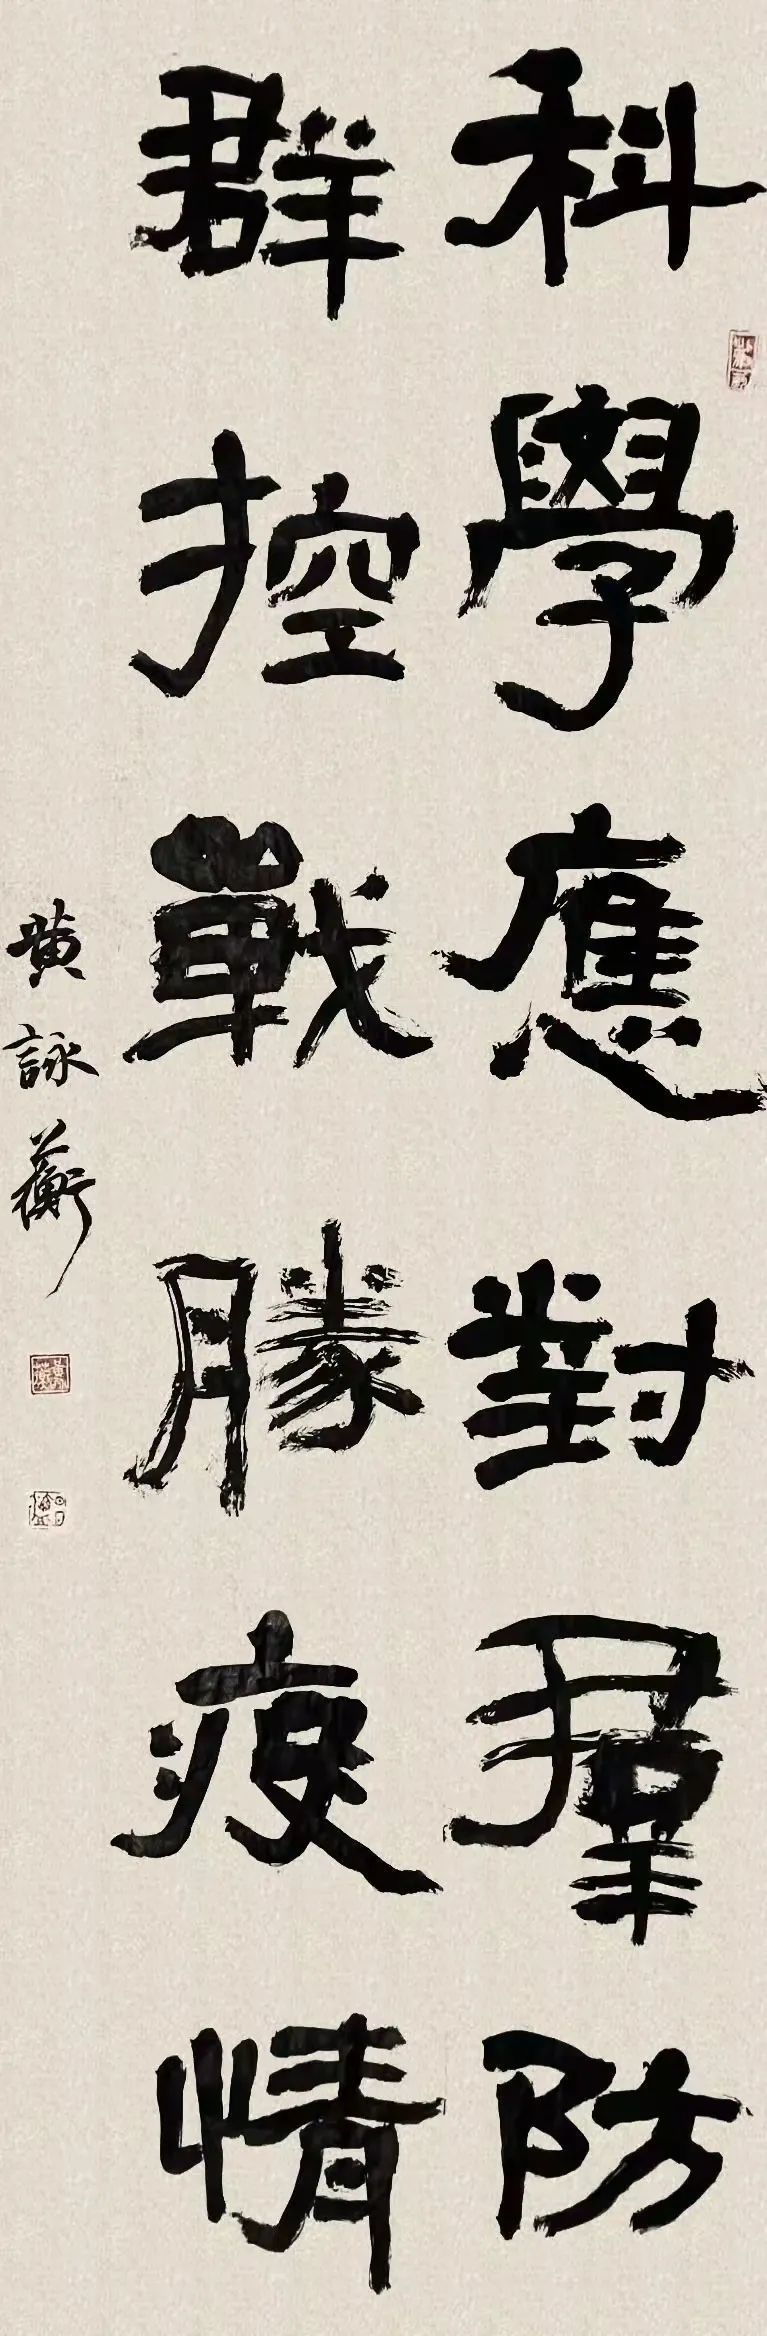 科學應對羣防
群控戰勝疫情
黄詠蘅